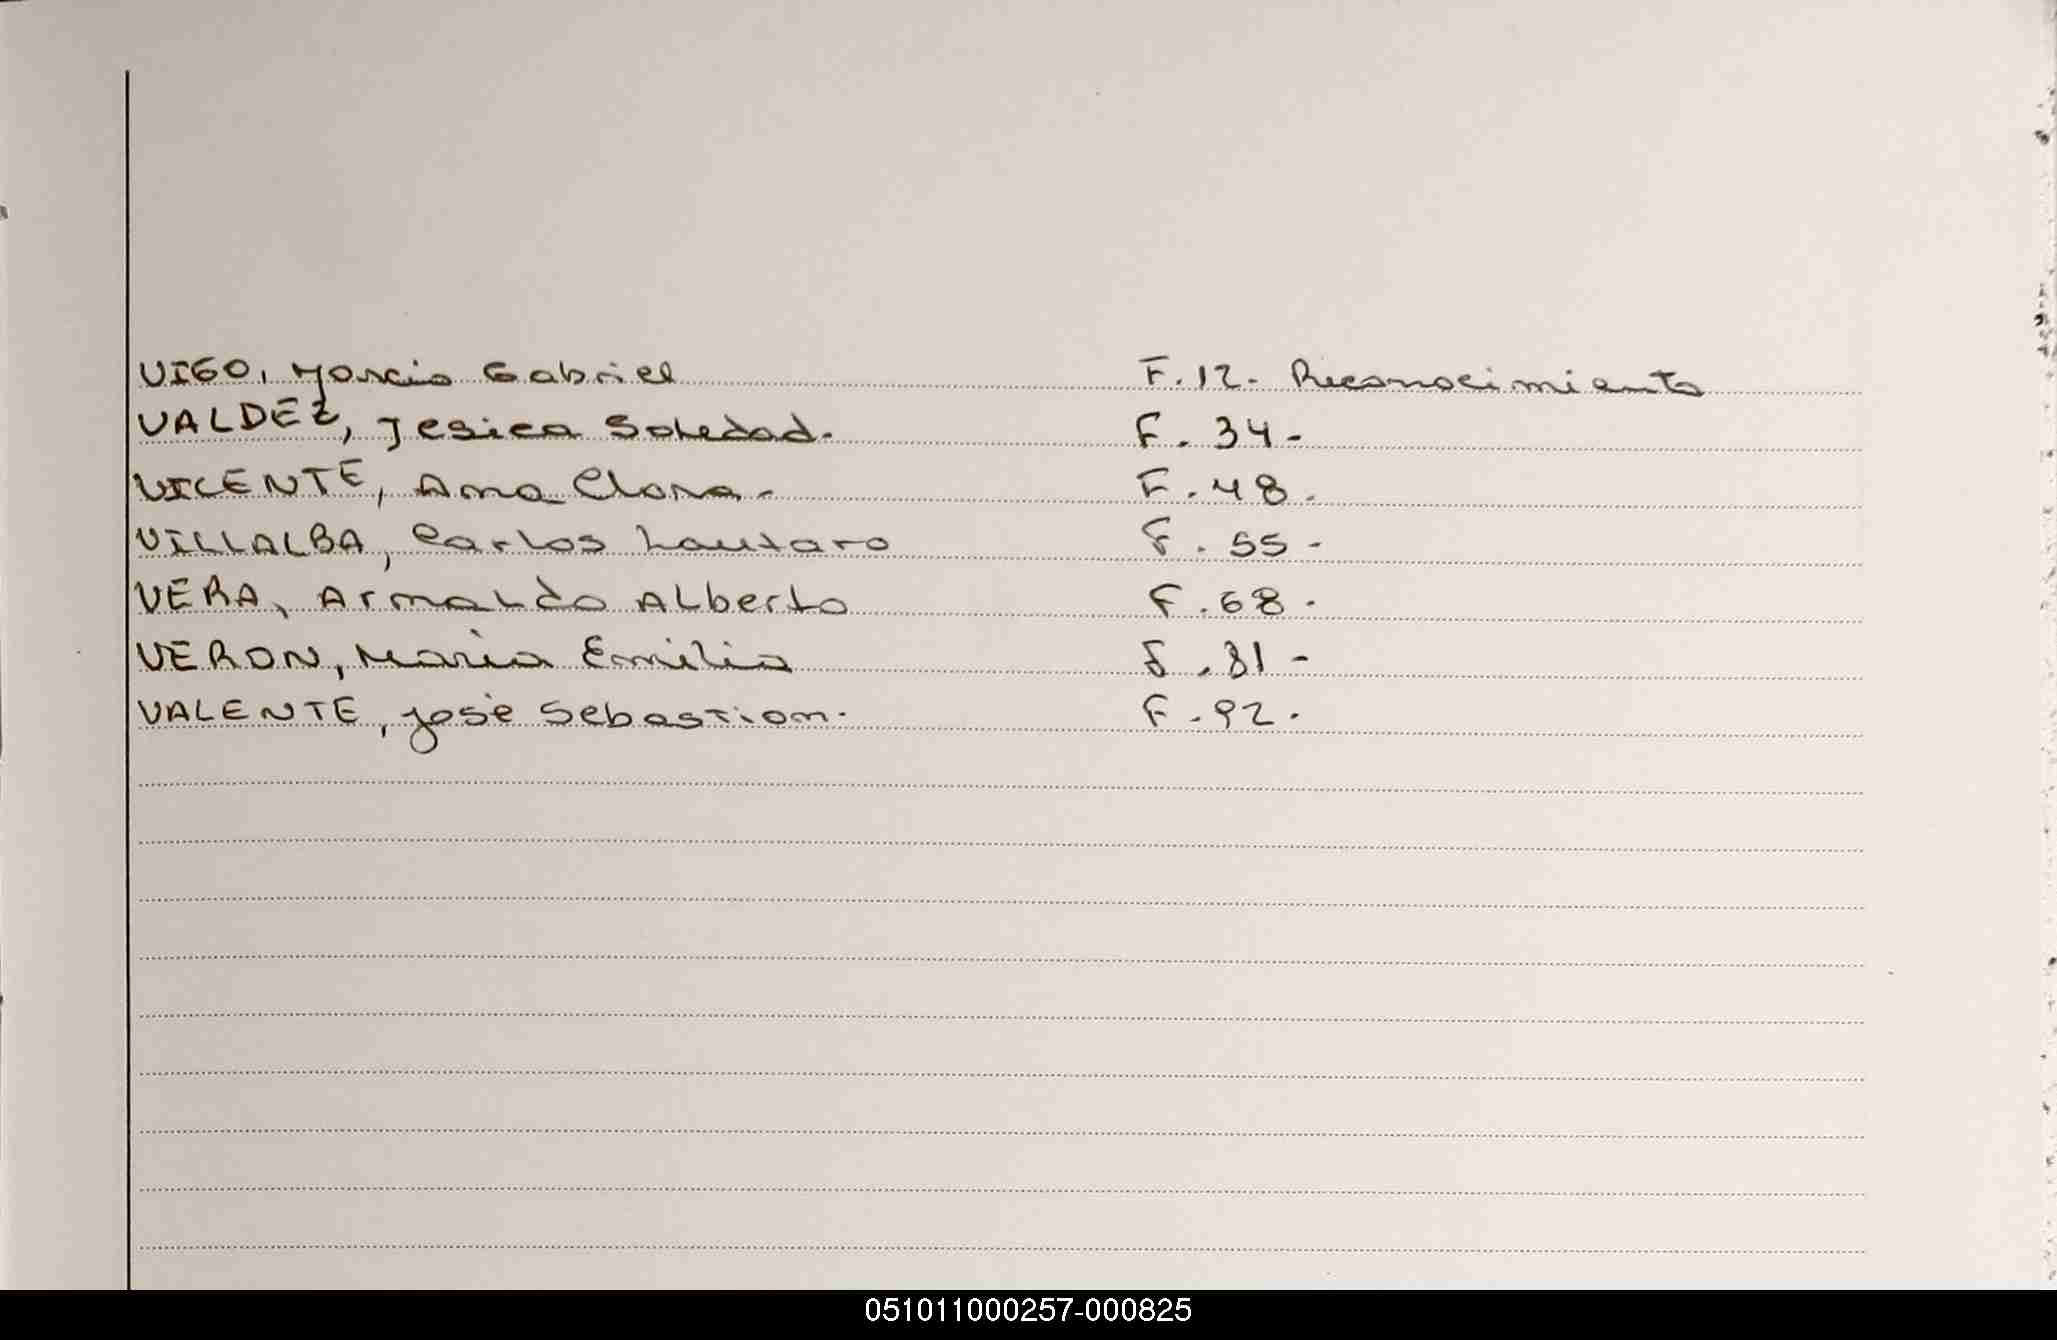 VIGO, Marcio Gabriel F.12. Reconocimiento
VALDEZ, Jesica Soledad. F. 34-
VICENTE, Ana Clara.- F.48.
VILLALBA, Carlos Lautaro F. 55-
VERA, Arnaldo Alberto F.68.
VERON, Maria Emilia F.81-
VALENTE, José Sebastian. F.92.
051011000257-000825